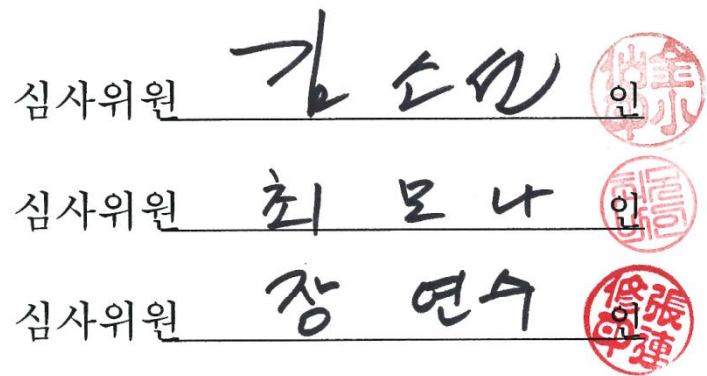 심사위원 김 소선 인
심사위원 최 모 나 인
심사위원 장 연수 인